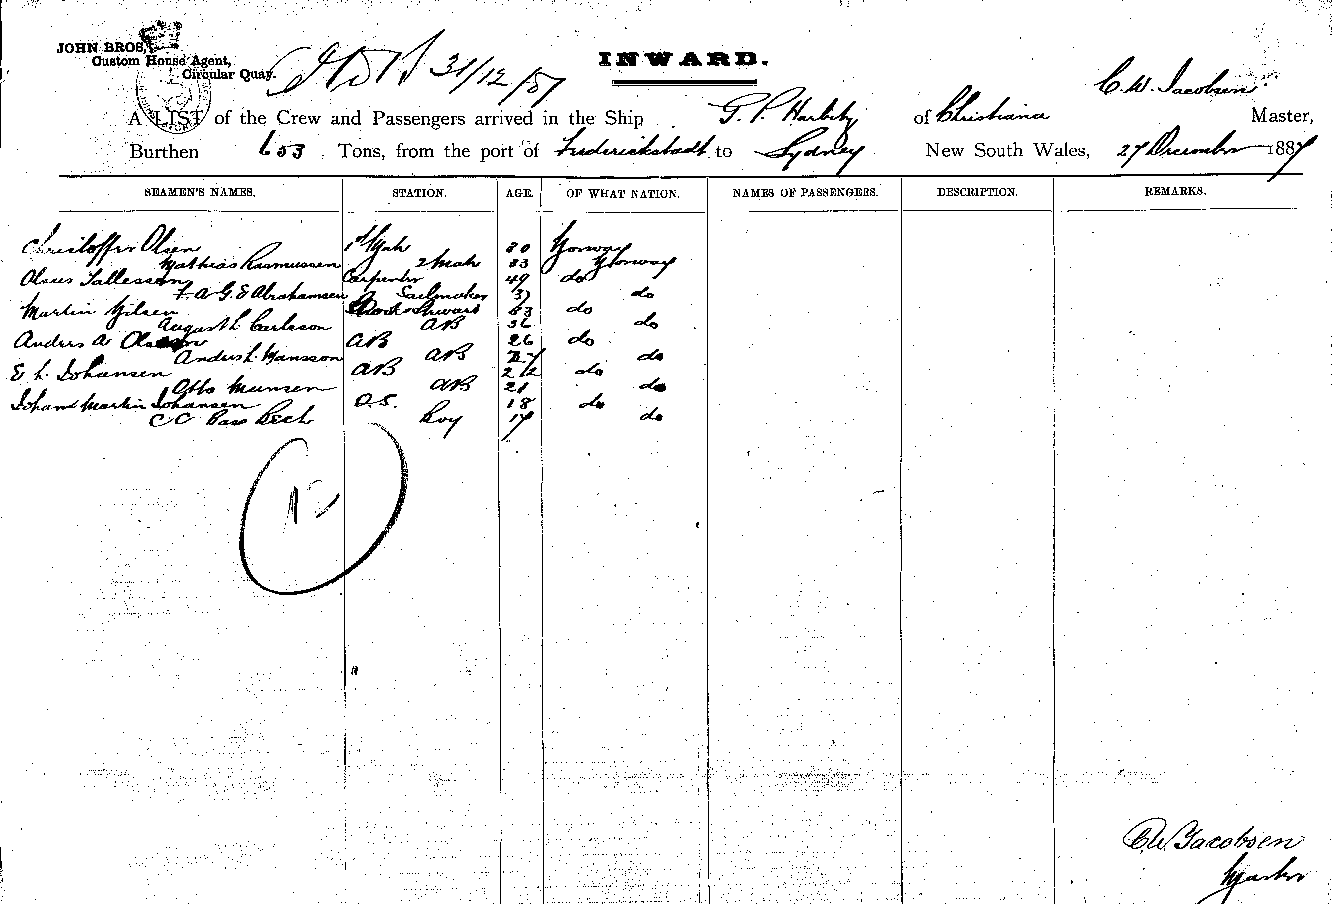 JOHN BROS,
Custom House Agent,
Circular Quay.
31/12/87
INWARD.
C. W. Jacobsen
A LIST of the Crew and Passengers arrived in the Ship G. P. Harbitz of Christiania Master,
Burthen 653 Tons, from the port of Frederickstadt to Sydney New South Wales, 27 December 1887
SEAMEN'S NAMES. STATION. AGE. OF WHAT NATION. NAMES OF PASSENGERS. DESCRIPTION. REMARKS.
Christoffer Olsen 1st Mate 30 Norway
Mathias Rasmussen 2 Mate 33 Norway
Olaus Tallessen Carpenter 49 do
F. A G. E Abrahamsen Sailmaker 37 do
Martin Nilsen Steward 53 do
August L Carlsson AB 36 do
Anders A AB 26 do
Anders L. Hansson AB 27 do
E L. Johansen AB 22 do
Otto Munsen AB 21 do
Johan Martin Johansen O.S. 18 do
C C Beck Boy 17 do
C W Jacobsen
Master